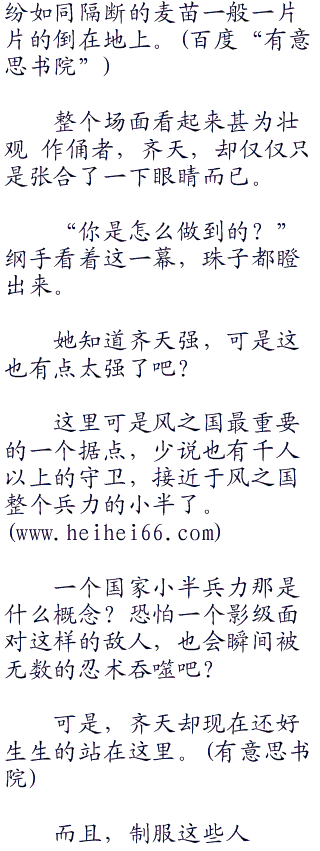 纷如同隔断的麦苗一般一片
片的倒在地上。(百度“有意
思书院”)
整个场面看起来甚为壮
观 作俑者，齐天，却仅仅只
是张合了一下眼睛而已。
“你是怎么做到的？”
纲手看着这一幕，珠子都瞪
出来。
她知道齐天强，可是这
也有点太强了吧？
这里可是风之国最重要
的一个据点，少说也有千人
以上的守卫，接近于风之国
整个兵力的小半了。
(www.heihei66.com)
一个国家小半兵力那是
什么概念？恐怕一个影级面
对这样的敌人，也会瞬间被
无数的忍术吞噬吧？
可是，齐天却现在还好
生生的站在这里。(有意思书
院)
而且，制服这些人